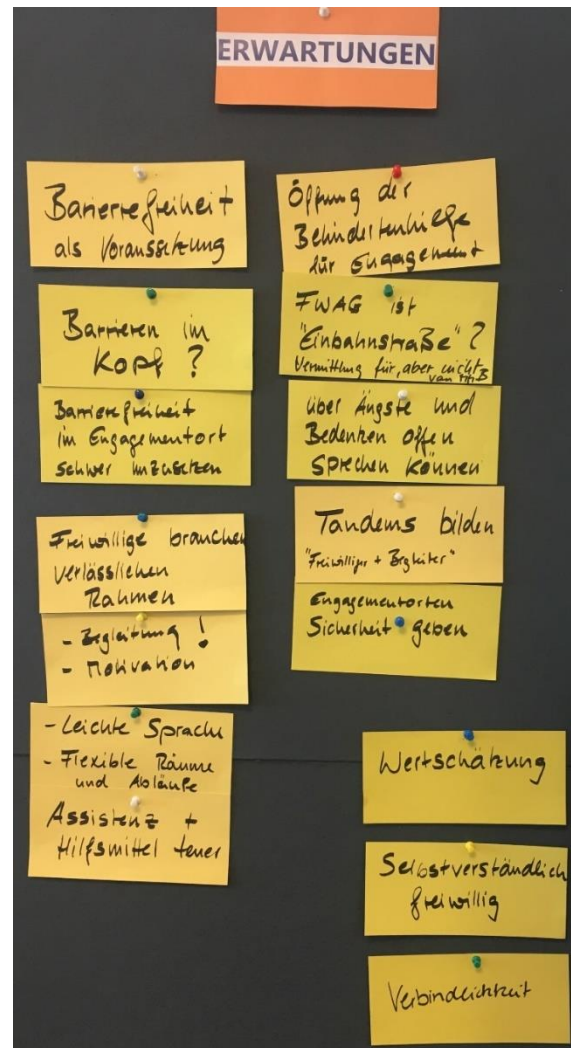 ERWARTUNGEN
Barrierefreiheit
als Voraussetzung
Barrieren im
Kopf ?
Barrierefreiheit
im Engagementort
schwer umzusetzen
Freiwillige brauchen
verlässlichen
Rahmen
- Begleitung !
- Motivation
- Leichte Sprache
- Flexible Räume
und Abläufe
Assistenz +
Hilfsmittel teuer
Öffnung der
Behindertenhilfe
für Engagement
FWAG ist
"Einbahnstraße" ?
Vermittlung für, aber nicht
von
über Ängste und
Bedenken offen
sprechen können
Tandems bilden
"Freiwilliger + Begleiter"
Engagementorten
Sicherheit geben
Wertschätzung
Selbstverständlich
freiwillig
Verbindlichkeit